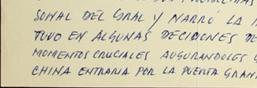 SONAL DEL GRAL Y NARRÓ LA
TUVO EN ALGUNAS DECISIONES DE
MOMENTOS CRUCIALES AUGURANDOLES
CHINA ENTRARIA POR LA PUERTA GRAN